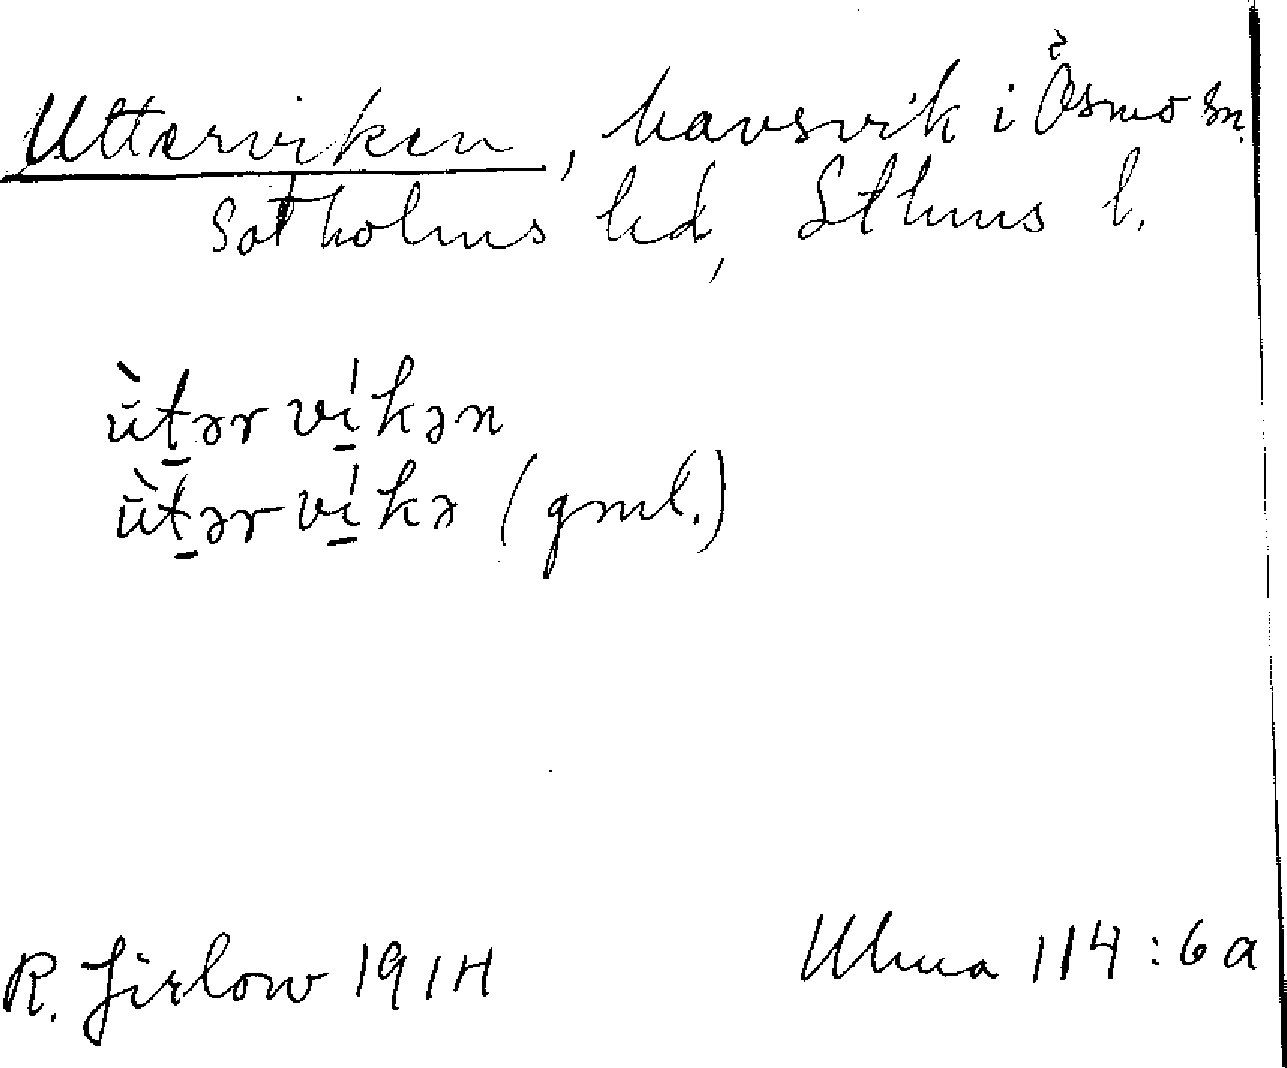 Utterviken, havsvik i Ösmo sn.
Sotholms hd, Sthms l.
ù̄t̠ər vi̠ˈkən
ù̄t̠ər vi̠ˈkə (gml.)
R. Jirlow 1914
Ulma 114:6a